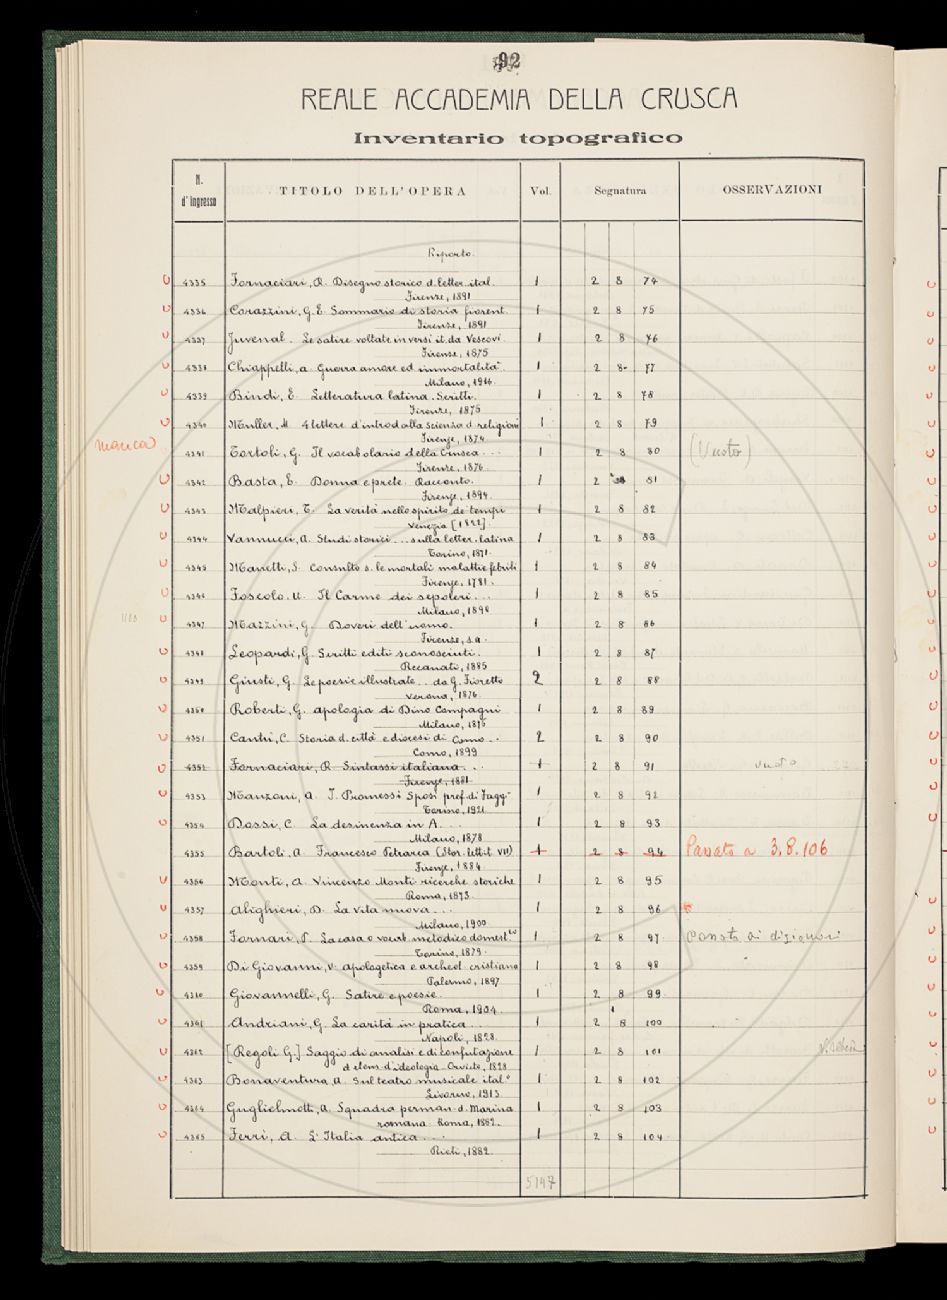 92
REALE ACCADEMIA DELLA CRUSCA
Inventario topografico
N. d'Ingresso TITOLO DELL'OPERA Vol. Segnatura OSSERVAZIONI
Riporto.
4335 Fornaciari, R. Disegno storico d. letter. ital. 1 2 8 74
Firenze, 1891
4336 Corazzini, G. E. Sommario di storia fiorent. 1 2 8 75
Firenze, 1891
4337 Juvenal. Le satire voltate in versi it. da Vescovi. 1 2 8 76
Firenze, 1875
4338 Chiappelli, A. Guerra amore ed immortalità 1 2 8 77
Milano, 1916
4339 Bindi, E. Letteratura latina. Scritti. 1 2 8 78
Firenze, 1875
4340 Muller, M. 4 lettere d'introd. alla scienza d. religioni 1 2 8 79
Firenze, 1874
manca
4341 Tortoli, G. Il vocabolario della Crusca... 1 2 8 80 (Vuoto)
Firenze, 1876
4342 Basta, E. Donna e prete. Racconto. 1 2 8 81
Firenze, 1894.
4343 Malpieri, T. La verità nello spirito de' tempi 1 2 8 82
Venezia [1822]
4344 Vannucci, A. Studi storici... sulla letter. latina 1 2 8 83
Torino, 1871.
4345 Manetti, S. Consulto s. le mortali malattie febrili 1 2 8 84
Firenze, 1781.
4346 Foscolo, U. Il Carme dei sepolcri... 1 2 8 85
Milano, 1898
4347 Mazzini, G. Doveri dell'uomo. 1 2 8 86
Firenze, s.a.
4348 Leopardi, G. Scritti editi sconosciuti. 1 2 8 87
Recanati, 1885
4349 Giusti, G. Le poesie illustrate.. da G. Fioretto 2 2 8 88
Verona, 1876.
4350 Roberti, G. Apologia di Dino Compagni 1 2 8 89
Milano, 1875
4351 Cantù, C. Storia d. città e diocesi di Como.. 2 2 8 90
Como, 1899
4352 Fornaciari, R. Sintassi italiana... 1 2 8 91 vuoto
Firenze, 1881
4353 Manzoni, A. I. Promessi Sposi pref. di Fagg. 1 2 8 92
Torino, 1921
4354 Dossi, C. La desinenza in A... 1 2 8 93
Milano, 1878
4355 Bartoli, A. Francesco Petrarca (Stor. lett. it. VII) 1 2 8 94 Passato a 3.8.106
Firenze, 1884
4356 Monti, A. Vincenzo Monti ricerche storiche 1 2 8 95
Roma, 1873.
4357 Alighieri, D. La vita nuova... 1 2 8 96
Milano, 1900
4358 Fornari, P. La casa o vocab. metodico domest.co 1 2 8 97
Torino, 1879.
4359 Di Giovanni, V. Apologetica e archeol. cristiana 1 2 8 98
Palermo, 1897
4360 Giovannelli, G. Satire e poesie. 1 2 8 99
Roma, 1904.
4361 Andriani, G. La carità in pratica... 1 2 8 100
Napoli, 1828.
4362 [Regoli G.] Saggio di analisi e di confutazione 1 2 8 101
d. elem. d'ideologia. Orvieto, 1828
4363 Bonaventura, A. Sul teatro musicale ital.o 1 2 8 102
Livorno, 1913
4364 Guglielmotti, A. Squadra perman. d. Marina 1 2 8 103
romana. Roma, 1882.
4365 Ferri, A. L'Italia antica.... 1 2 8 104
Rieti, 1882.
5147